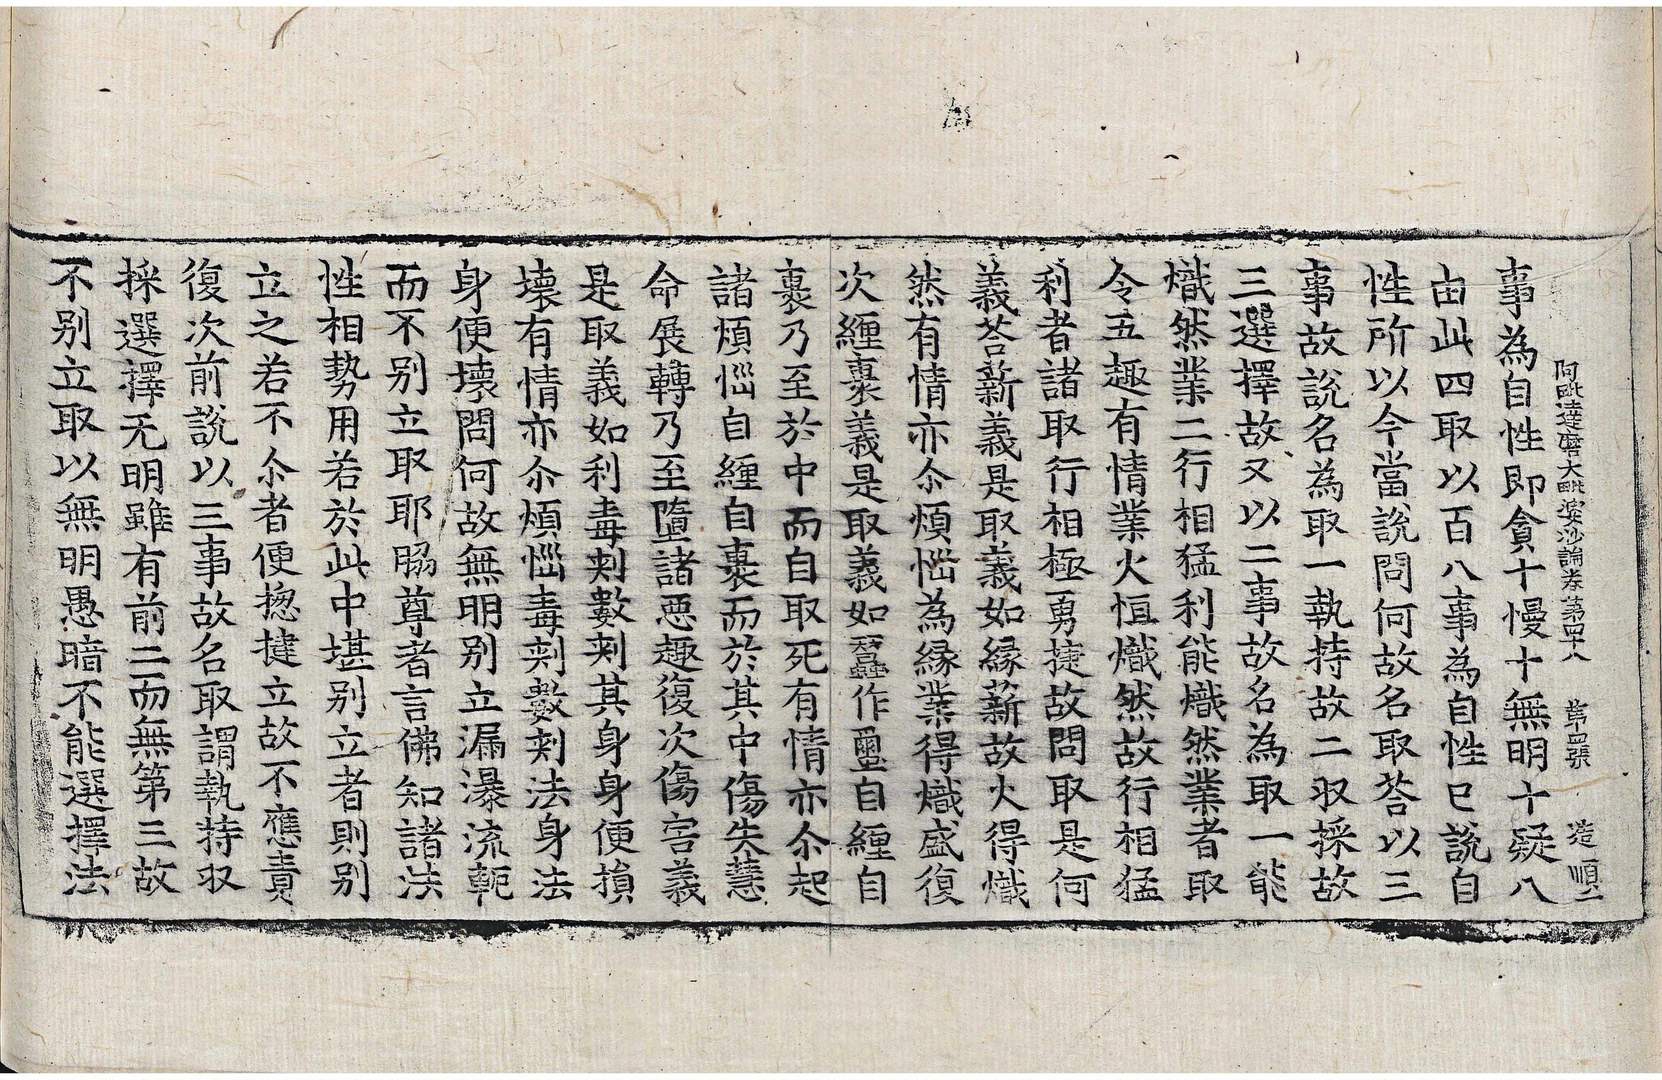 阿毗達磨大毗婆沙論卷第四十八　第四張　造　順
事為自性即貪十慢十無明十疑八
由此四取以百八事為自性已說自
性所以今當說問何故名取荅以三
事故說名為取一執持故二収採故
三選擇故又以二事故名為取一能
熾然業二行相猛利能熾然業者取
令五趣有情業火恒熾然故行相猛
利者諸取行相極勇捷故問取是何
義荅薪義是取義如緣薪故火得熾
然有情亦尒煩惱為緣業得熾盛復
次纏裹義是取義如蠶作𠁅自纏自
裹乃至於中而自取死有情亦尒起
諸煩惱自纏自裹而於其中傷失慧
命展轉乃至墮諸惡趣復次傷害義
是取義如利毒刺數刺其身身便損
壞有情亦尒煩惱毒刺數刺法身法
身便壞問何故無明別立漏瀑流軛
而不別立取耶脇尊者言佛知諸法
性相勢用若於此中堪別立者則別
立之若不尒者便揔揵立故不應責
復次前說以三事故名取謂執持収
採選擇无明雖有前二而無第三故
不別立取以無明愚暗不能選擇法